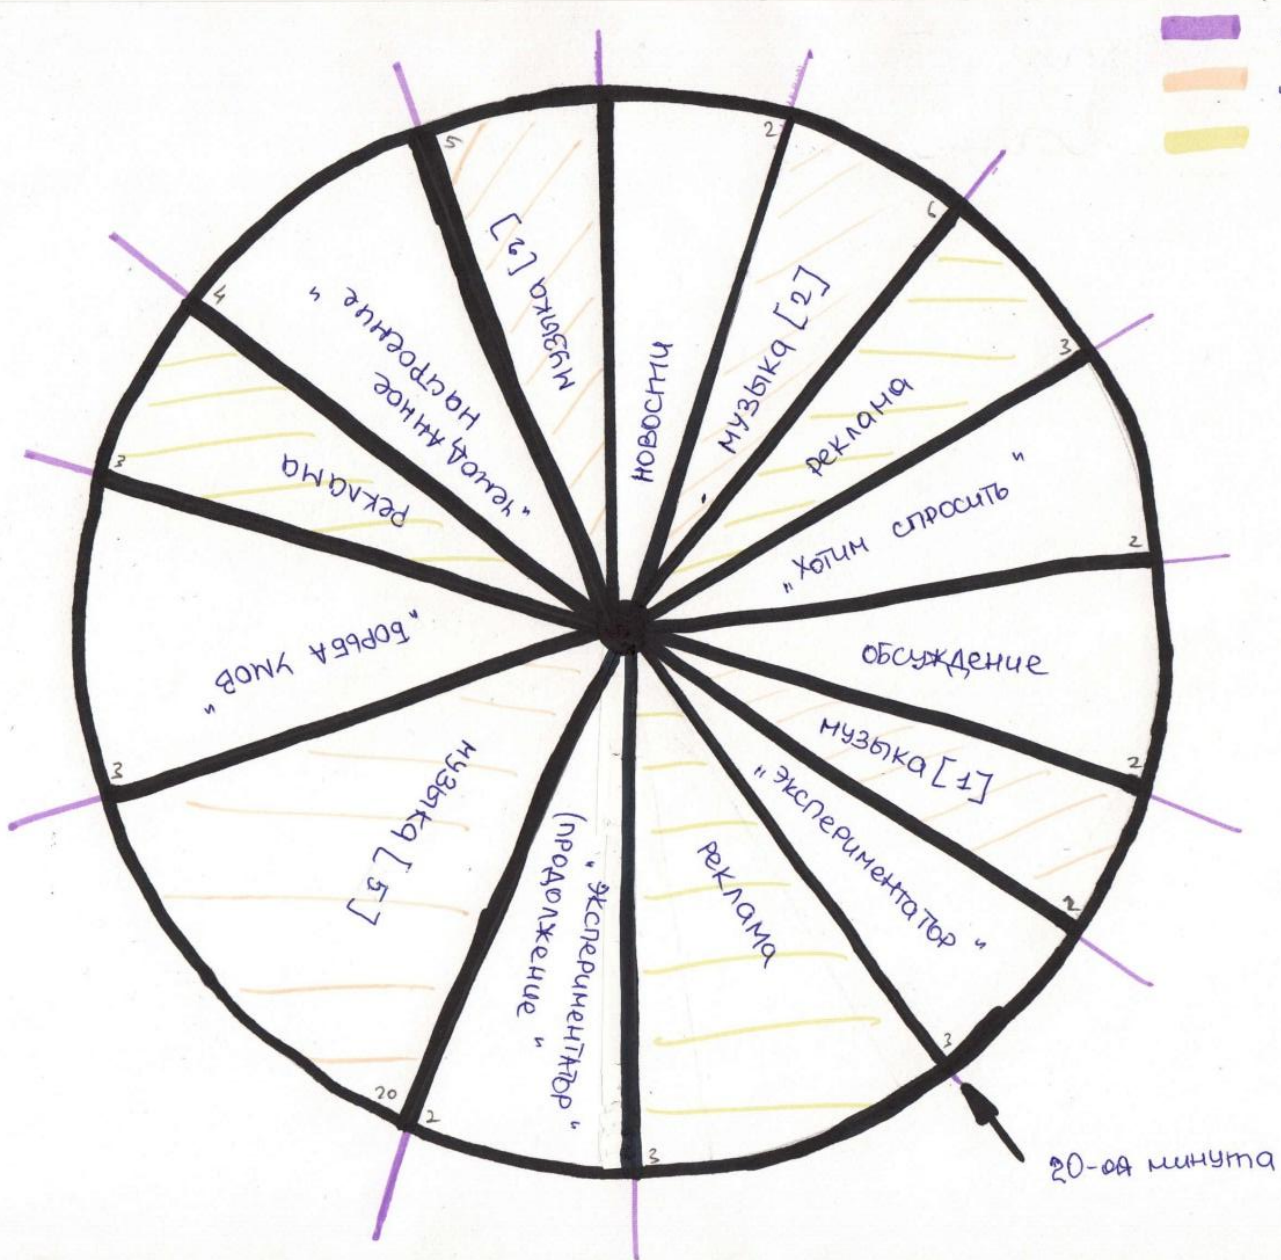 5
2
6
3
2
2
2
3
3
2
20
3
3
4
НОВОСТИ
МУЗЫКА [2]
РЕКЛАМА
"ХОТИМ СПРОСИТЬ"
ОБСУЖДЕНИЕ
МУЗЫКА [1]
"ЭКСПЕРИМЕНТАТОР"
РЕКЛАМА
"ЭКСПЕРИМЕНТАТОР"
(ПРОДОЛЖЕНИЕ"
МУЗЫКА [5]
"БОРЬБА УМОВ"
РЕКЛАМА
"ЧЕМОДАННОЕ
НАСТРОЕНИЕ"
МУЗЫКА [2]
20-ая минута